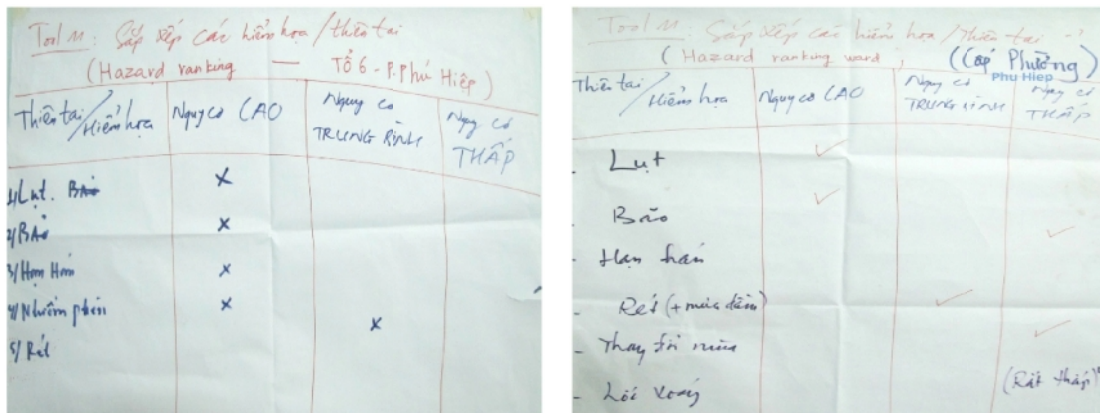 Tool 11: Sắp xếp các hiểm họa/thiên tai
(Hazard ranking — TỔ 6 - P. Phú Hiệp)
Thiên tai/Hiểm họa Nguy cơ CAO Nguy cơ TRUNG BÌNH Nguy cơ THẤP
1/ Lụt. x
2/ BÃO x
3/ Hạn Hán x
4/ Nhiễm phèn x
5/ Rét x
Tool 11: Sắp xếp các hiểm họa/thiên tai
(Hazard ranking ward, (Cấp Phường)
Phu Hiep
Thiên tai/Hiểm họa Nguy cơ CAO Nguy cơ TRUNG BÌNH Nguy cơ THẤP
- Lụt ✓
- Bão ✓
- Hạn hán ✓
- Rét (+ mưa dầm) ✓
- Thay đổi mùa ✓
- Lốc xoáy (Rất thấp)